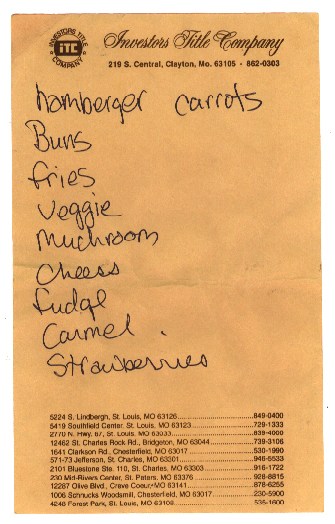 INVESTORS TITLE
ITC
COMPANY
Investors Title Company
219 S. Central, Clayton, Mo. 63105 • 862-0303
homberger carrots
Buns
fries
Veggie
Muchroom
Cheess
fudge
Carmel .
Strawberries
5224 S. Lindbergh, St. Louis, MO 63126 849-0400
5419 Southfield Center, St. Louis, MO 63123 729-1333
2770 N. Hwy. 67, St. Louis, MO 63033 839-4000
12462 St. Charles Rock Rd., Bridgeton, MO 63044 739-3106
1641 Clarkson Rd., Chesterfield, MO 63017 530-1990
571-73 Jefferson, St. Charles, MO 63301 946-5533
2101 Bluestone Ste. 110, St. Charles, MO 63303 916-1722
230 Mid-Rivers Center, St. Peters, MO 63376 928-8815
12287 Olive Blvd., Creve Coeur, MO 63141 878-6255
1006 Schnucks Woodsmill, Chesterfield, MO 63017 230-5900
4248 Forest Park, St. Louis, MO 63108 535-1600